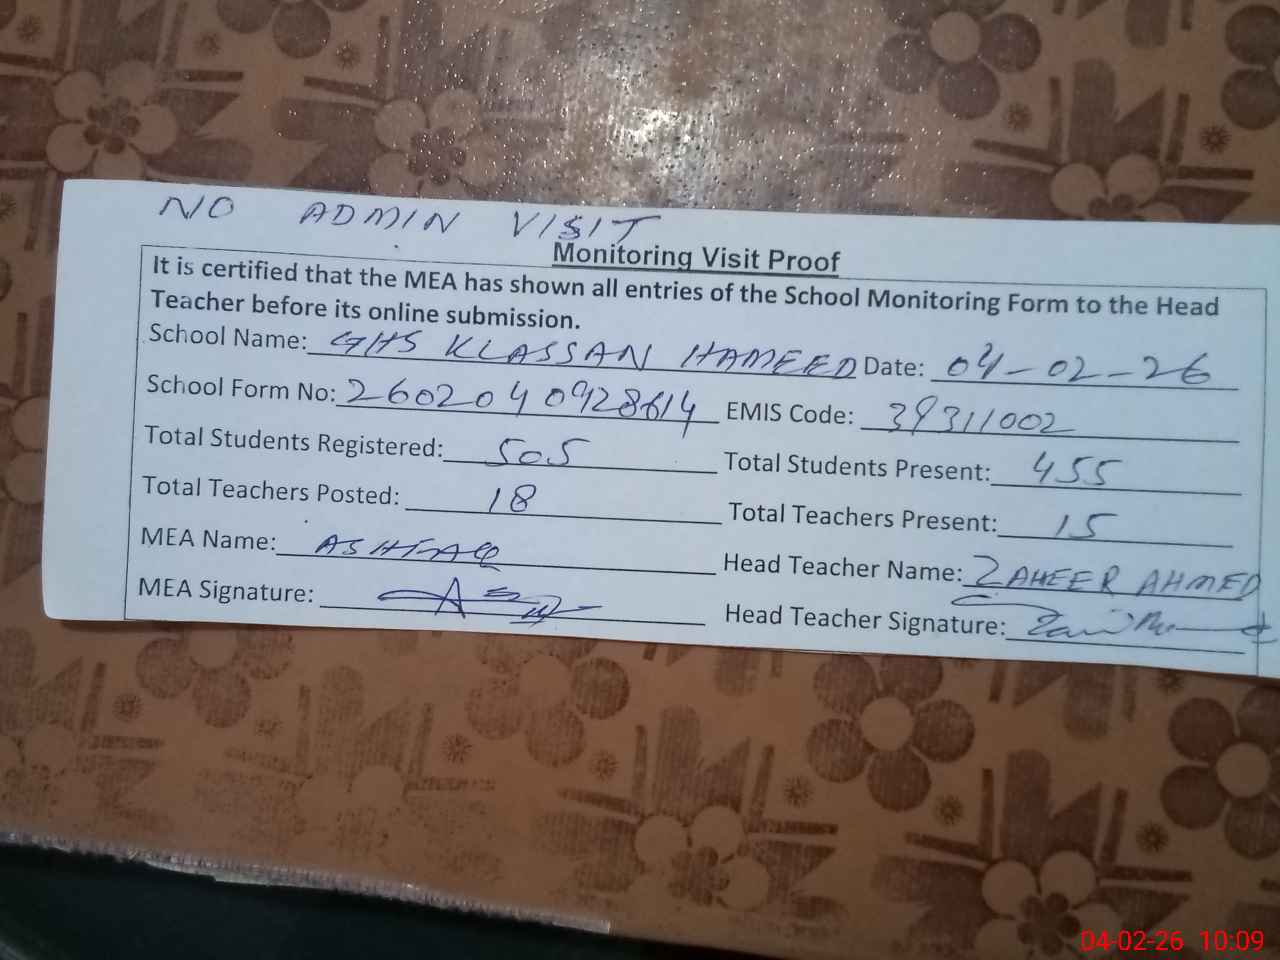 NO ADMIN VISIT
Monitoring Visit Proof
It is certified that the MEA has shown all entries of the School Monitoring Form to the Head
Teacher before its online submission.
School Name: GHS KLASSAN HAMEED Date: 04-02-26
School Form No: 2602040928614 EMIS Code: 39311002
Total Students Registered: 505 Total Students Present: 455
Total Teachers Posted: 18 Total Teachers Present: 15
MEA Name: ASHFAQ Head Teacher Name: ZAHEER AHMED
MEA Signature: Head Teacher Signature:
04-02-26 10:09